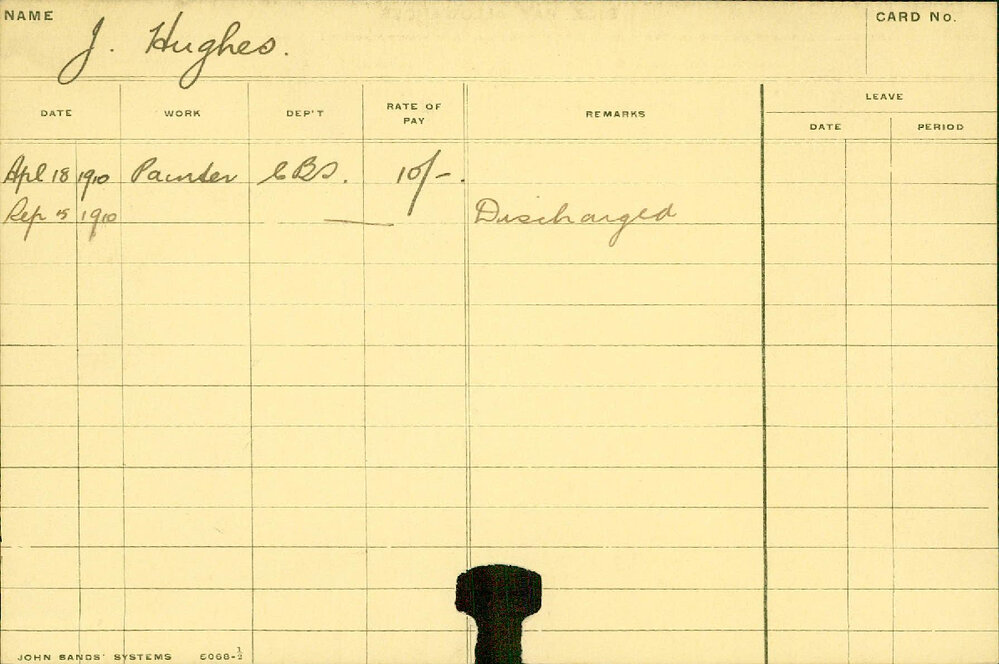 NAME
J. Hughes.
CARD No.
DATE WORK DEP'T RATE OF PAY REMARKS LEAVE
DATE PERIOD
Apl 18 1910 Painter 10/-.
Sep 15 1910 Discharged
JOHN SANDS' SYSTEMS